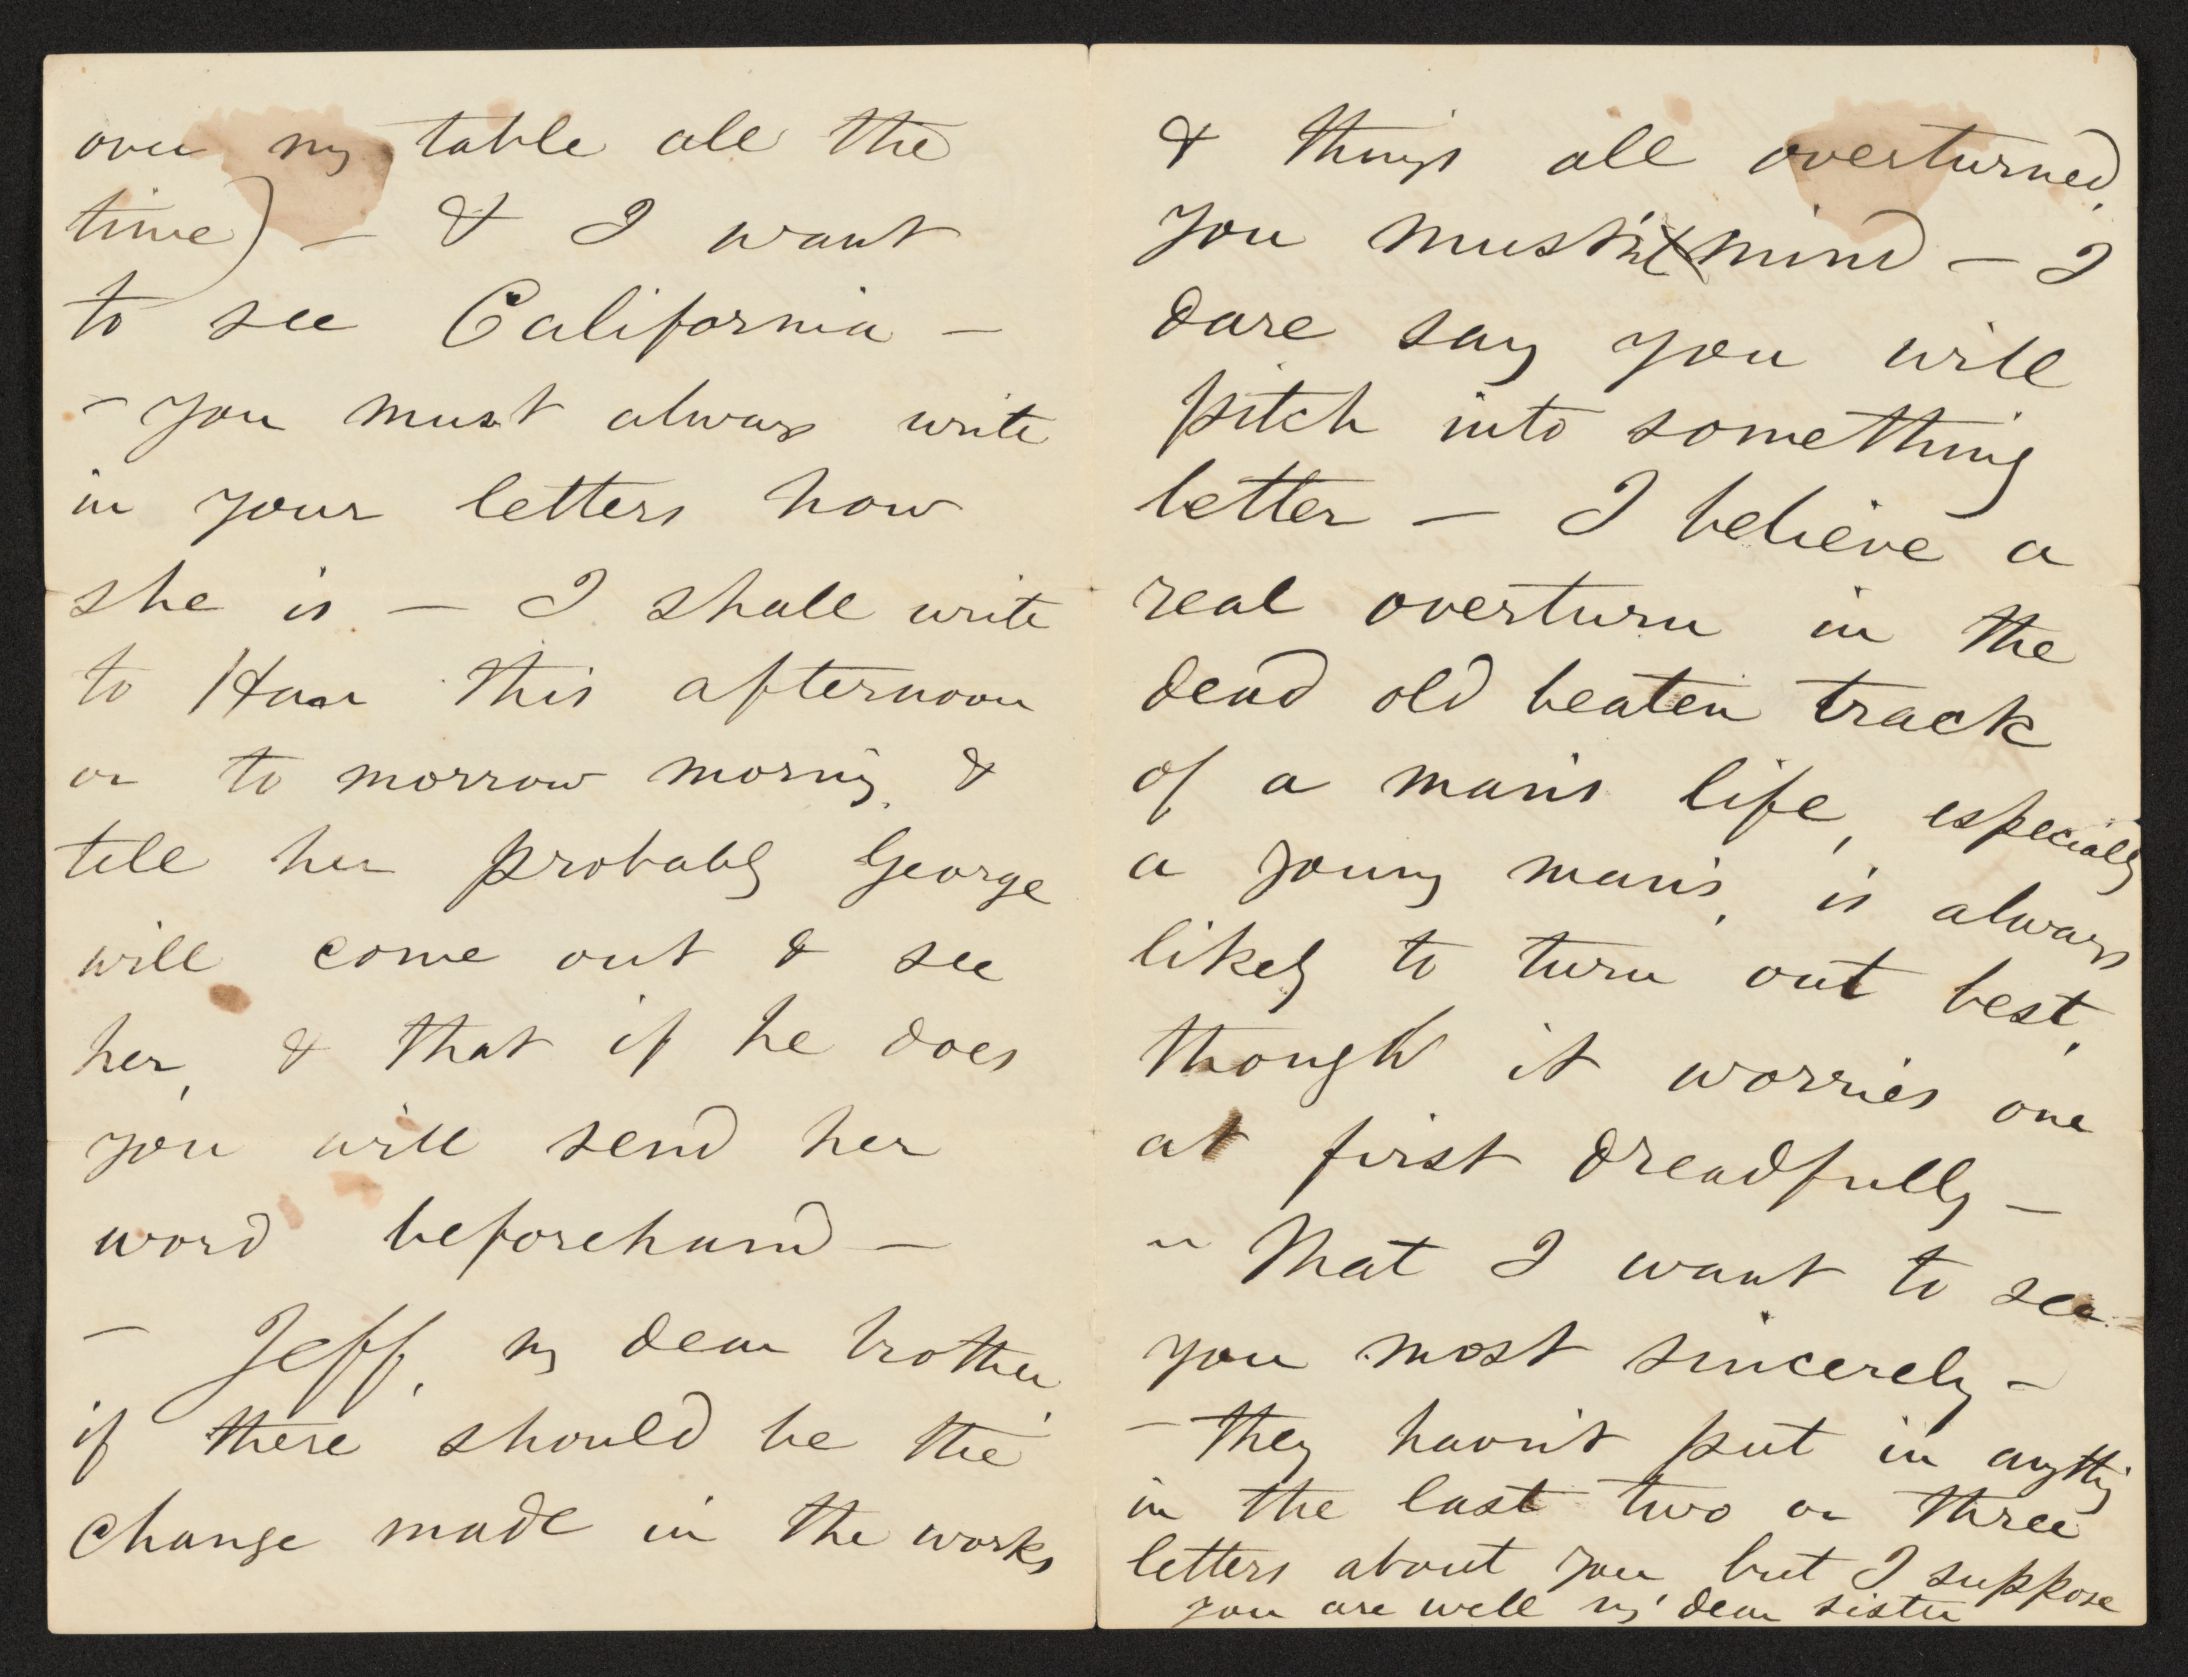 over my table all the
time) — & I want
to see California —
— you must always write
in your letters how
she is — I shall write
to Han this afternoon
or to morrow morning, &
tell her probably George
will come out & see
her, & that if he does
you will send her
word beforehand —
— Jeff, my dear brother,
if there should be the
change made in the works
& things all overturned,
you mustn't mind — I
dare say you will
pitch into something
better — I believe a
real overturn in the
dead old beaten track
of a man's life, especially
a young man's, is always
likely to turn out best,
though it worries one
at first dreadfully —
— Mat I want to see
you most sincerely —
— they havn't put in anything
in the last two or three
letters about you, but I suppose
you are well my dear sister